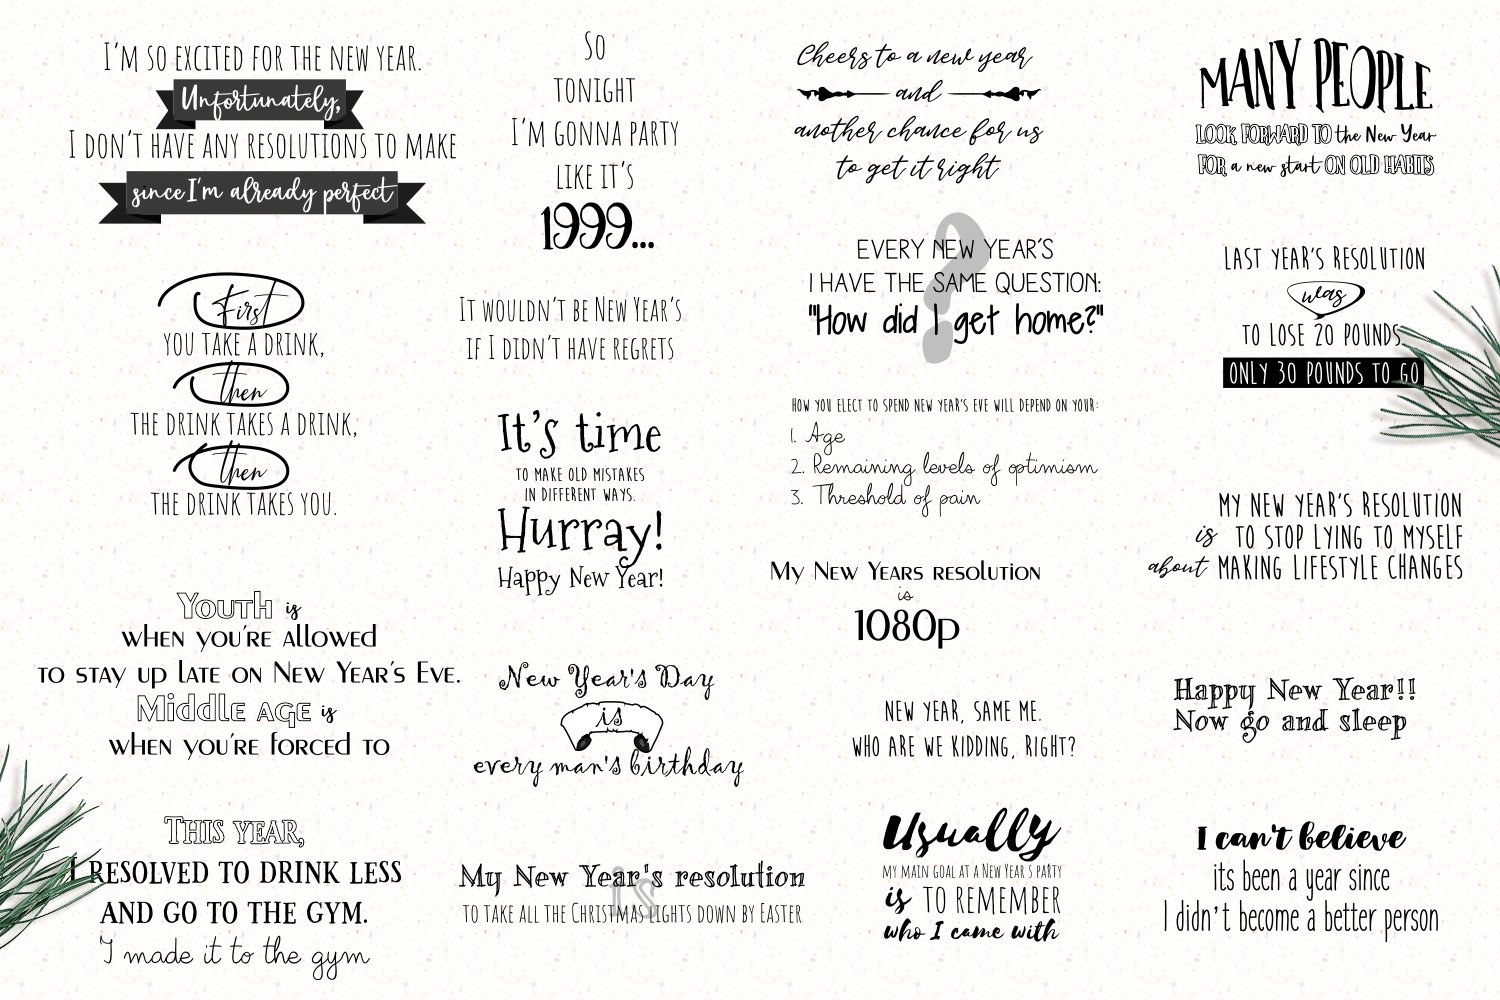 I'm so excited for the new year.
Unfortunately,
I don't have any resolutions to make
since I'm already perfect
First
you take a drink,
then
the drink takes a drink,
then
the drink takes you.
Youth is
when you're allowed
to stay up late on New Year's Eve.
Middle age is
when you're forced to
This year,
I resolved to drink less
and go to the gym.
I made it to the gym
So
tonight
I'm gonna party
like it's
1999...
It wouldn't be New Year's
if I didn't have regrets
It's time
to make old mistakes
in different ways.
Hurray!
Happy New Year!
New Year's Day
is
every man's birthday
My New Year's resolution
is
to take all the Christmas lights down by Easter
Cheers to a new year
and
another chance for us
to get it right
?
Every New Year's
I have the same question:
"How did I get home?"
How you elect to spend New Year's Eve will depend on your:
1. Age
2. Remaining levels of optimism
3. Threshold of pain
My New Years resolution
is
1080p
New Year, same me.
Who are we kidding, right?
Usually
my main goal at a New Year's party
is to remember
who I came with
MANY PEOPLE
LOOK FORWARD TO the New Year
FOR a new start ON OLD HABITS
Last Year's resolution
was
to lose 20 pounds.
Only 30 pounds to go
My New Year's resolution
is to stop lying to myself
about making lifestyle changes
Happy New Year!!
Now go and sleep
I can't believe
its been a year since
I didn't become a better person